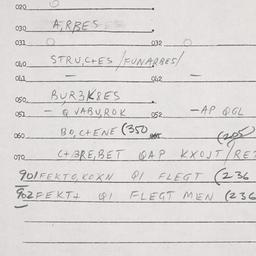 020
030 A,RBES
031 032
040 STRU,C+ES /FUNARBES/
041 - 042 -
050 BUR3K8ES
051 - Q VABU,ROK 052 -AP QGL
060 BO,C+ENE (350 (205)
070 C+3RE,BET QAP KXOJT /RE7
901 FEKTO,KOXN QI FLEGT (236
902 FEKT+ QI FLEGT MEN (236